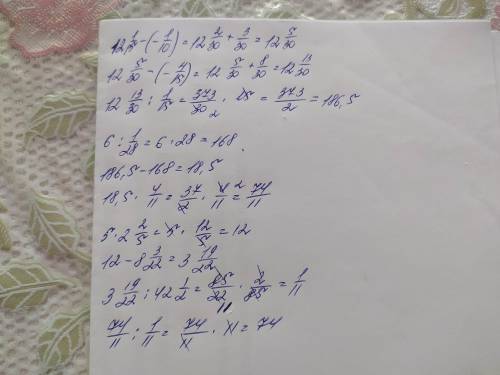 12 1/15 - (-1/10) = 12 2/30 + 3/30 = 12 5/30
12 5/30 - (-4/15) = 12 5/30 + 8/30 = 12 13/30
12 13/30 : 1/15 = 373/30 · 15 = 373/2 = 186,5
6 : 1/28 = 6 · 28 = 168
186,5 - 168 = 18,5
18,5 · 4/11 = 37/2 · 4/11 = 74/11
5 · 2 2/5 = 5 · 12/5 = 12
12 - 8 3/22 = 3 19/22
3 19/22 : 42 1/2 = 85/22 · 2/85 = 1/11
74/11 : 1/11 = 74/11 · 11 = 74